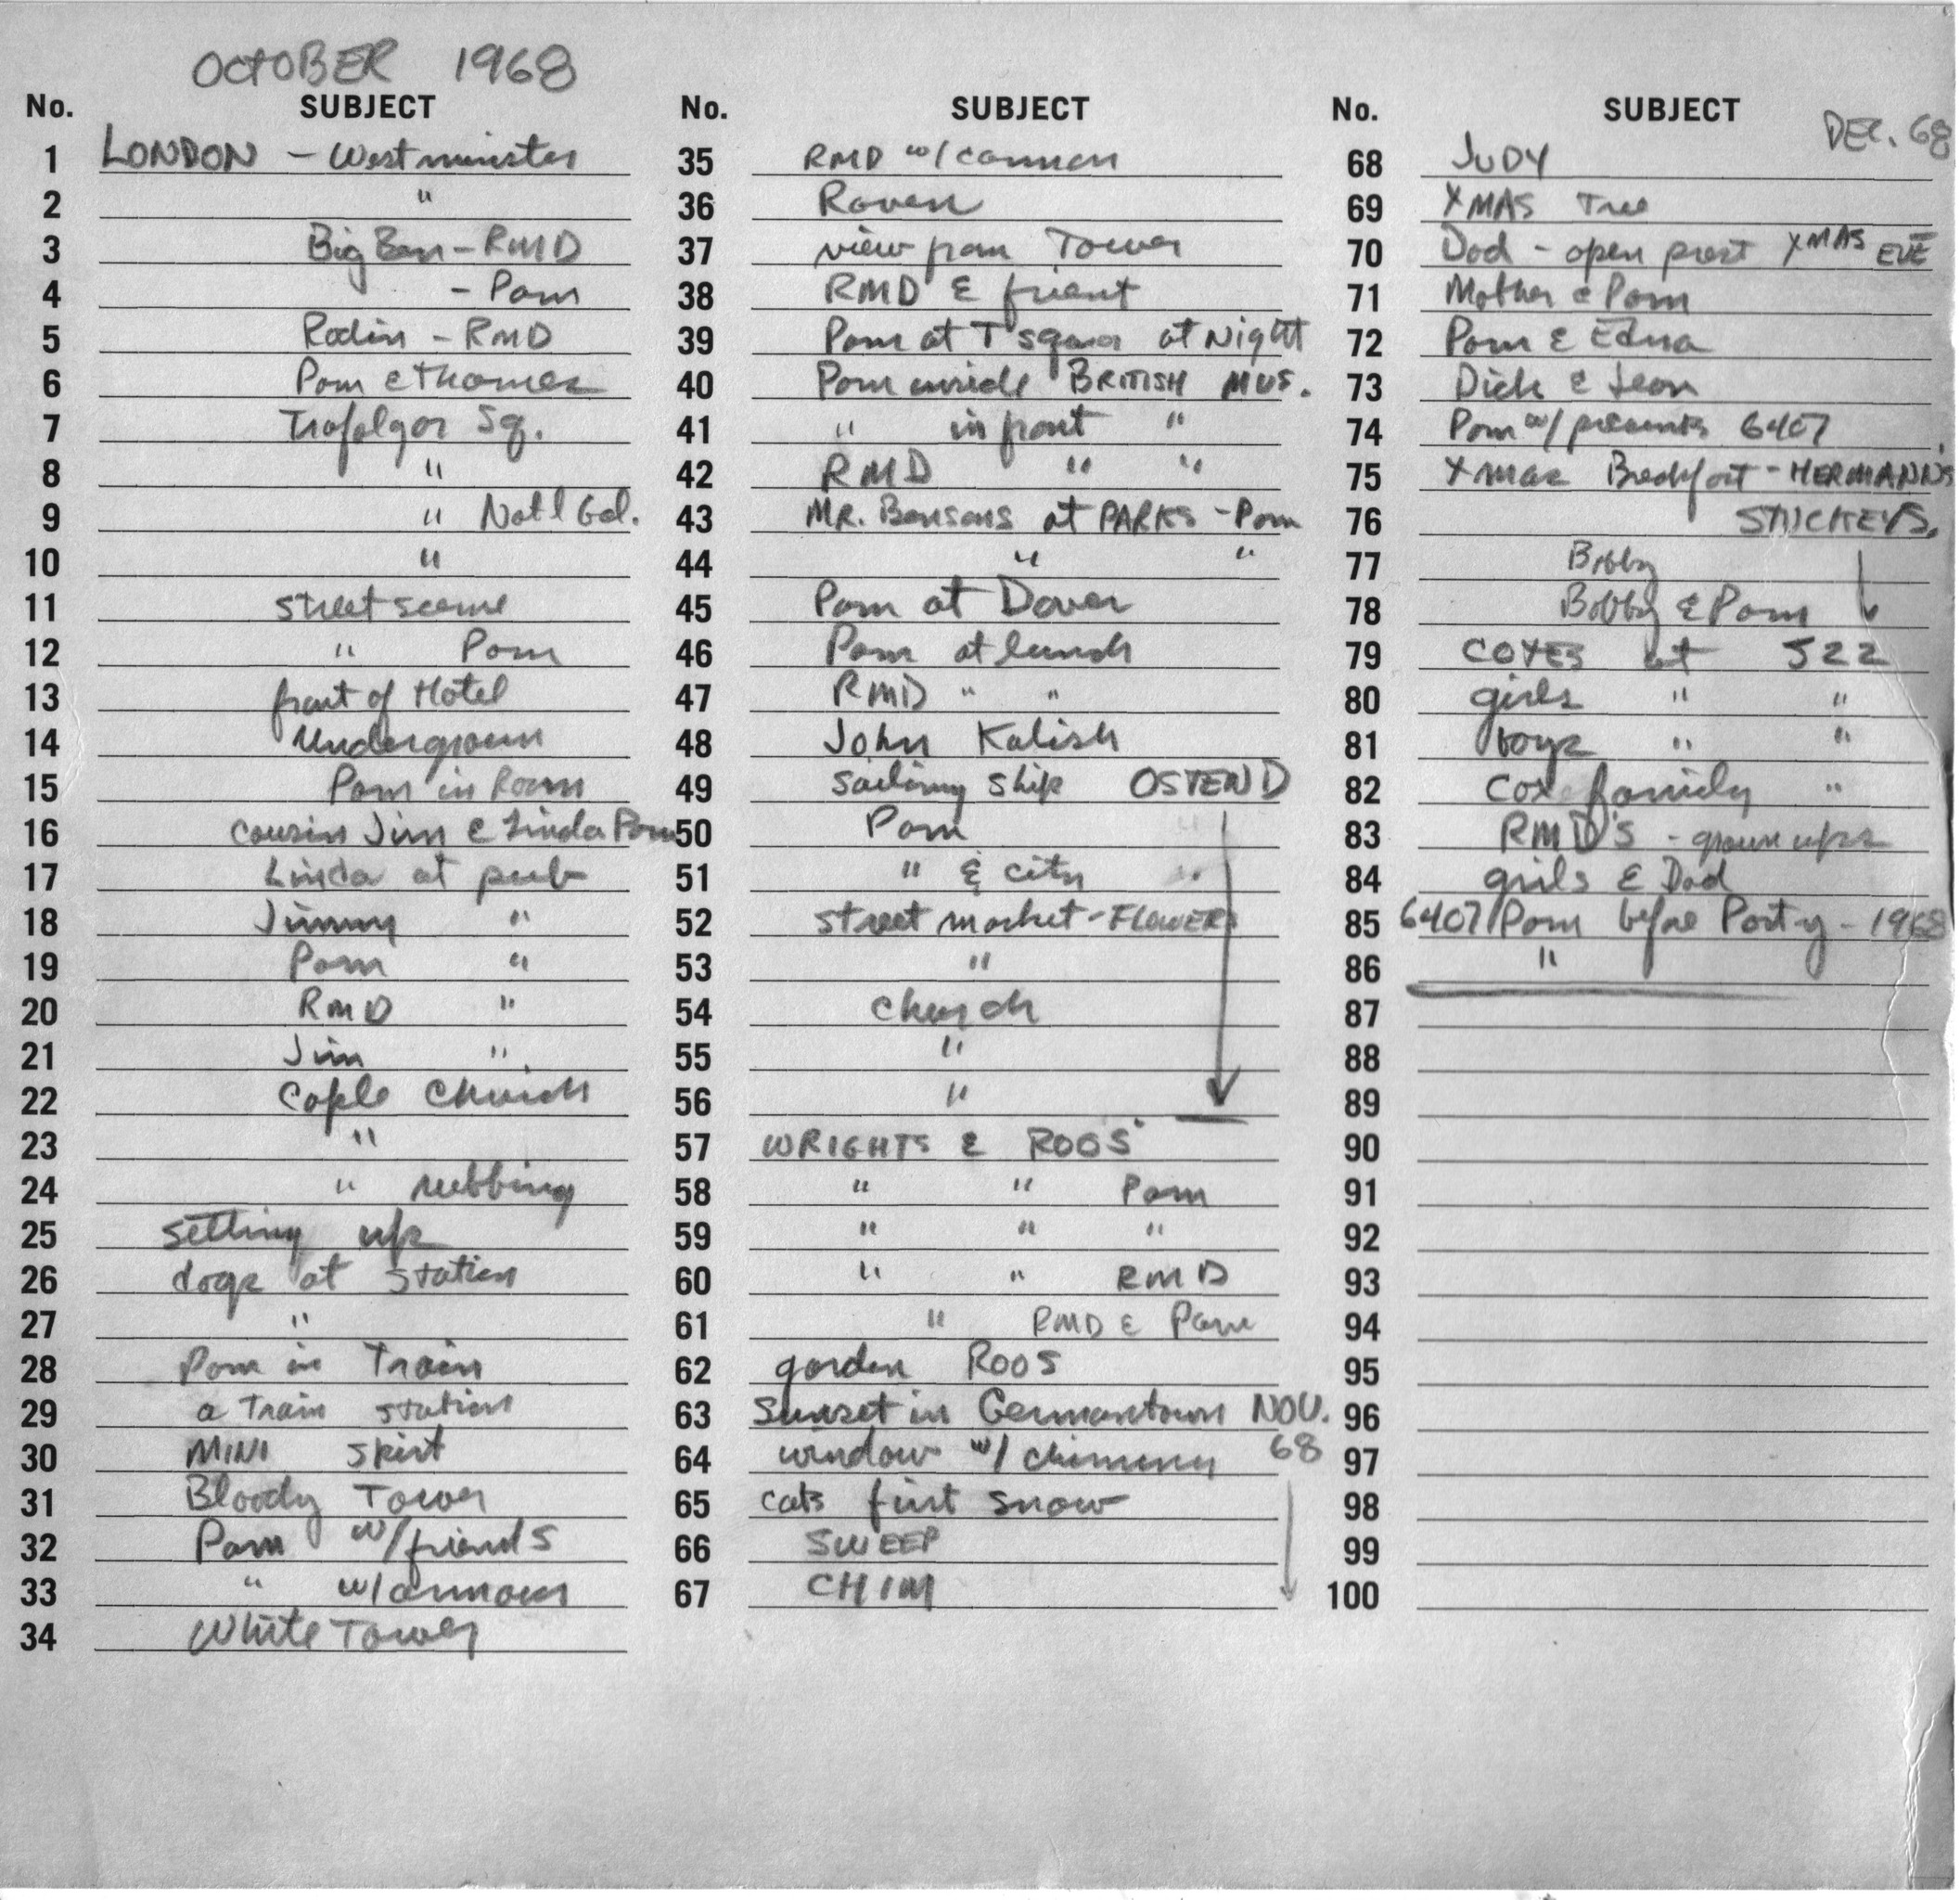 OCTOBER 1968
No. SUBJECT
1 LONDON - Westminster
2 "
3 Big Ben - RMD
4 - Pam
5 Rodin - RMD
6 Pam & Thames
7 Trafalgar Sq.
8 "
9 " Nat'l Gal.
10 "
11 street scene
12 " Pam
13 front of Hotel
14 Undergroun
15 Pam in Room
16 cousin Jim & Linda Pam
17 Linda at pub
18 Jimmy "
19 Pam "
20 RMD "
21 Jim "
22 Cople Church
23 "
24 " rubbing
25 setting up
26 dogs at station
27 "
28 Pam in Train
29 a Train station
30 MINI skirt
31 Bloody Tower
32 Pam w/friends
33 " w/armour
34 White Tower
No. SUBJECT
35 RMD w/cannon
36 Raven
37 view from Tower
38 RMD &
39 Pam at T square at Night
40 Pam inside BRITISH MUS.
41 " in front "
42 RMD " "
43 MR. Bensons at PARKS - Pam
44 " "
45 Pam at Dover
46 Pam at lunch
47 RMD " "
48 John Kalish
49 sailing ship OSTEND
50 Pam
51 " & city "
52 street market - FLOWERS
53 "
54 church
55 "
56 "
57 WRIGHTS & ROOS'
58 " " Pam
59 " " "
60 " " RMD
61 " RMD & Pam
62 garden ROOS
63 Sunset in Germantown NOV.
64 window w/ chimney 68
65 cats first snow
66 SWEEP
67 CHIM
No. SUBJECT
DEC. 68
68 JUDY
69 XMAS Tree
70 Dad - open prest XMAS EVE
71 Mother & Pam
72 Pam & Edna
73 Dick & Jean
74 Pam w/presents 6407
75 Xmas Breakfast - HERMANN'S
76 STUCKEYS.
77 Bobby
78 Bobby & Pam
79 COXES at 522
80 girls " "
81 boys " "
82 Cox family "
83 RMD'S - grown ups
84 girls & Dad
85 6407 Pam before Party - 1968
86 "
87
88
89
90
91
92
93
94
95
96
97
98
99
100